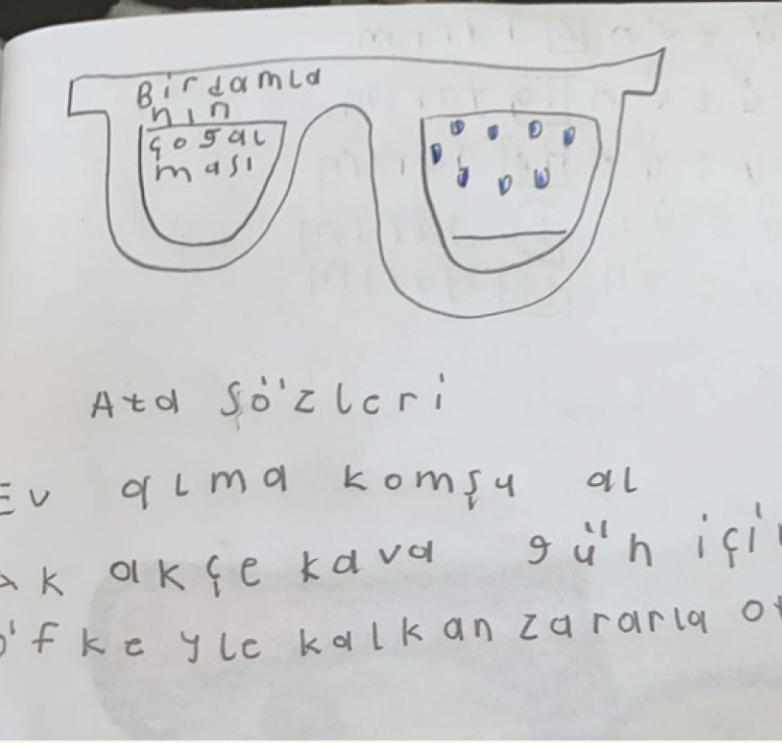 Birdamla
nın
çoğal
ması
Ata şözleri
Ev alma komşu al
Ak akçe kava gün içi
öfke yle kalkan zararla ot